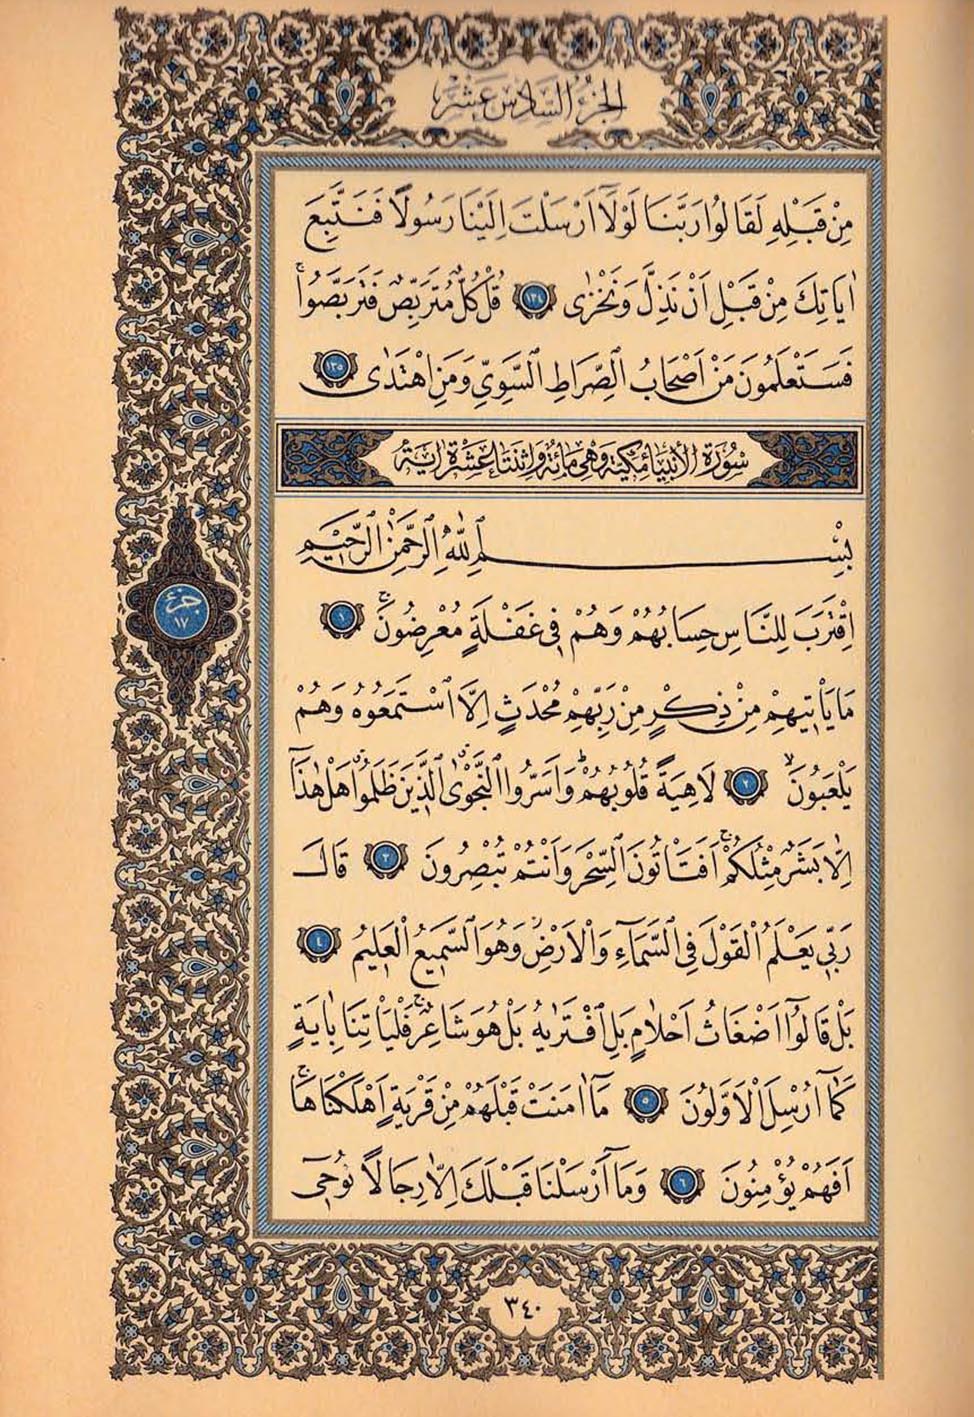 الجزء السادس عشر
مِنْ قَبْلِهِ لَقَالُوا رَبَّنَا لَوْلَٓا اَرْسَلْتَ اِلَيْنَا رَسُولًا فَنَتَّبِعَ
اٰيَاتِكَ مِنْ قَبْلِ اَنْ نَذِلَّ وَنَخْزٰى ١٣٤ قُلْ كُلٌّ مُتَرَبِّصٌ فَتَرَبَّصُواۚ
فَسَتَعْلَمُونَ مَنْ اَصْحَابُ الصِّرَاطِ السَّوِيِّ وَمَنِ اهْتَدٰى ١٣٥
سُورَةُ الْأَنْبِيَاءِ مَكِّيَّةٌ وَهِيَ مِائَةٌ وَاثْنَتَا عَشْرَةَ اٰيَةً
بِسْمِ اللّٰهِ الرَّحْمٰنِ الرَّحِيمِ
اِقْتَرَبَ لِلنَّاسِ حِسَابُهُمْ وَهُمْ فِي غَفْلَةٍ مُعْرِضُونَۚ ١
جزء
١٧
مَا يَأْتِيهِمْ مِنْ ذِكْرٍ مِنْ رَبِّهِمْ مُحْدَثٍ اِلَّا اسْتَمَعُوهُ وَهُمْ
يَلْعَبُونَۙ ٢ لَاهِيَةً قُلُوبُهُمْۜ وَاَسَرُّوا النَّجْوٰىۗ الَّذِينَ ظَلَمُواۗ هَلْ هٰذَٓا
اِلَّا بَشَرٌ مِثْلُكُمْۚ اَفَتَأْتُونَ السِّحْرَ وَاَنْتُمْ تُبْصِرُونَ ٣ قَالَ
رَبِّي يَعْلَمُ الْقَوْلَ فِي السَّمَٓاءِ وَالْاَرْضِۘ وَهُوَ السَّمِيعُ الْعَلِيمُ ٤
بَلْ قَالُٓوا اَضْغَاثُ اَحْلَامٍ بَلِ افْتَرٰيهُ بَلْ هُوَ شَاعِرٌۚ فَلْيَأْتِنَا بِاٰيَةٍ
كَمَٓا اُرْسِلَ الْاَوَّلُونَ ٥ مَٓا اٰمَنَتْ قَبْلَهُمْ مِنْ قَرْيَةٍ اَهْلَكْنَاهَاۚ
اَفَهُمْ يُؤْمِنُونَ ٦ وَمَٓا اَرْسَلْنَا قَبْلَكَ اِلَّا رِجَالًا نُوحِٓي
٣٤٠